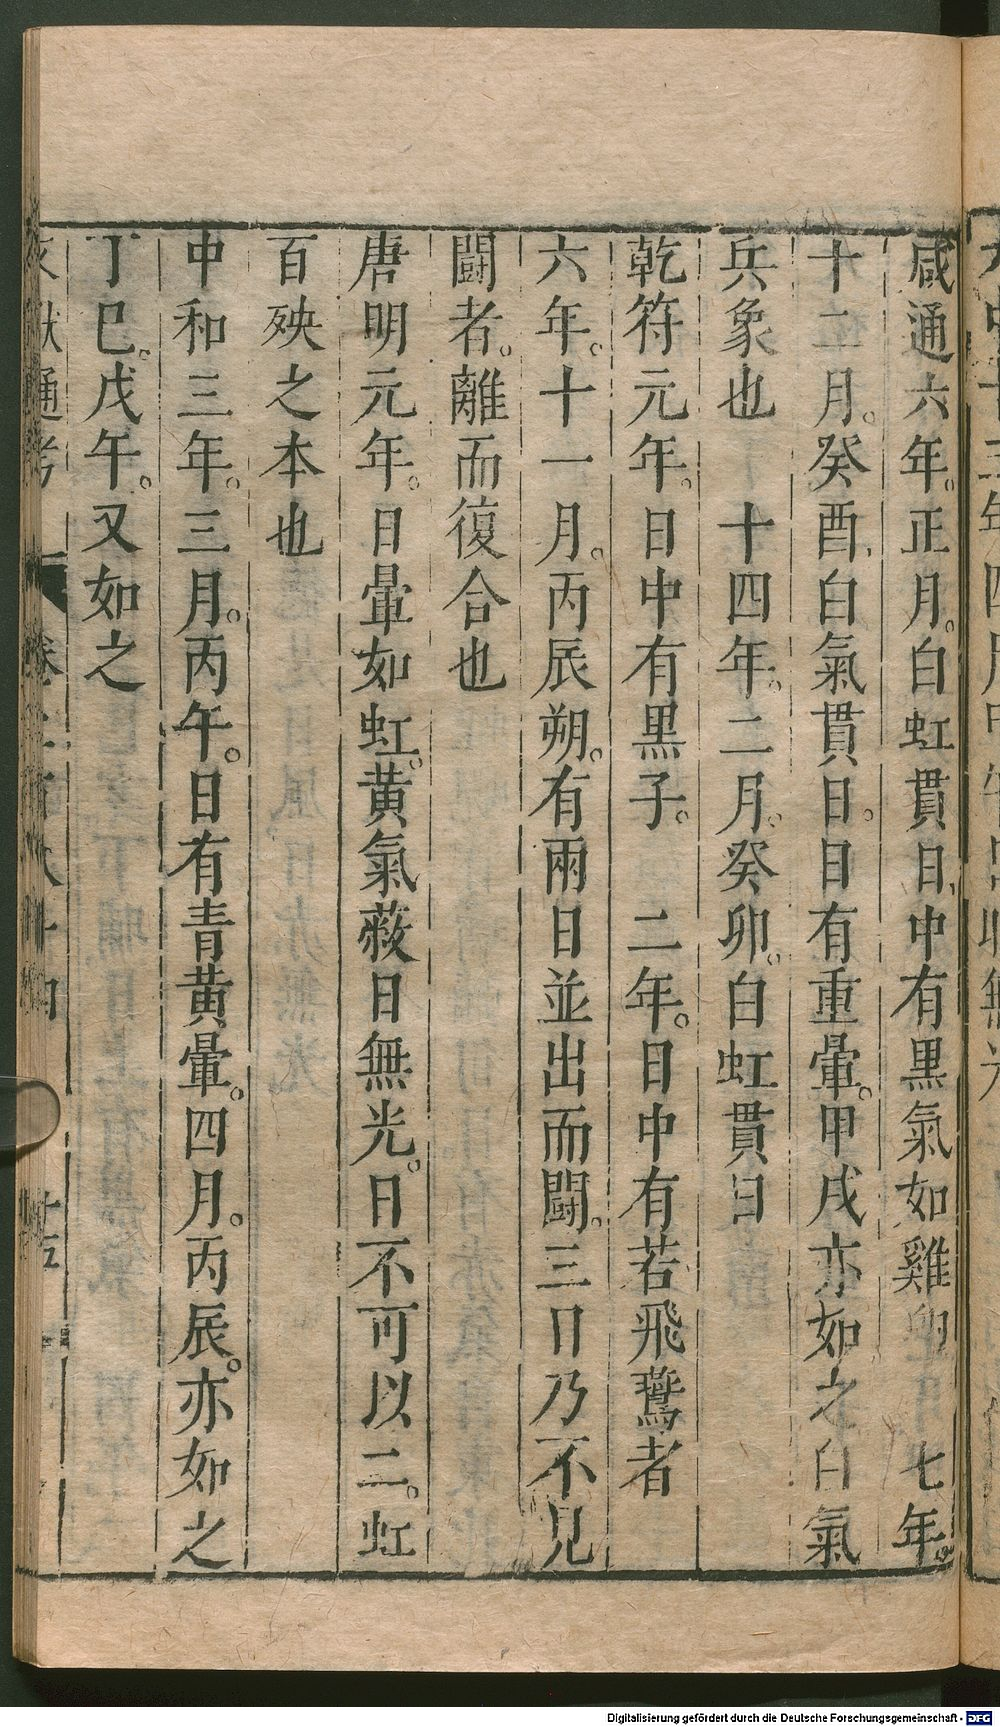 咸通六年。正月。白虹貫日。中有黒氣如雞卵　七年。
十二月。癸酉。白氣貫日。日有重暈。甲戌亦如之白氣
兵象也　十四年。二月。癸卯。白虹貫日
乾符元年。日中有黒子。　二年。日中有若飛鷰者
六年。十一月。丙辰朔。有兩日並出而鬪。三日乃不見
鬪者。離而復合也
唐明元年。日暈如虹。黄氣蔽日無光。日不可以二。虹
百殃之本也
中和三年。三月。丙午。日有青黄暈。四月。丙辰。亦如之
丁巳。戊午。又如之
文獻通考
十五
Digitalisierung gefördert durch die Deutsche Forschungsgemeinschaft - DFG